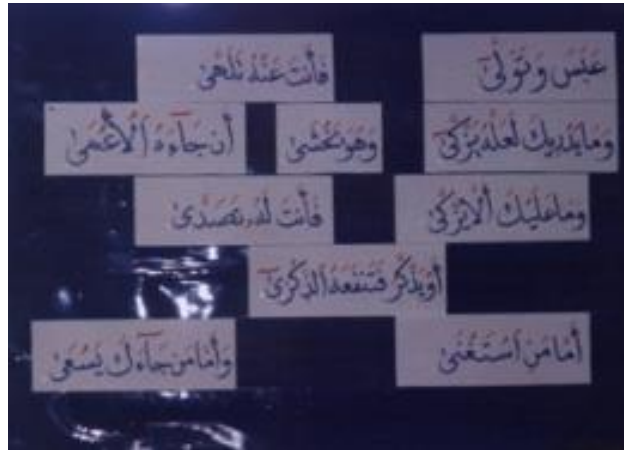 عَبَسَ وَتَوَلَّىٰٓ
فَأَنتَ عَنْهُ تَلَهَّىٰ
وَمَا يُدْرِيكَ لَعَلَّهُۥ يَزَّكَّىٰٓ
وَهُوَ يَخْشَىٰ
أَن جَآءَهُ ٱلْأَعْمَىٰ
وَمَا عَلَيْكَ أَلَّا يَزَّكَّىٰ
فَأَنتَ لَهُۥ تَصَدَّىٰ
أَوْ يَذَّكَّرُ فَتَنفَعَهُ ٱلذِّكْرَىٰٓ
أَمَّا مَنِ ٱسْتَغْنَىٰ
وَأَمَّا مَن جَآءَكَ يَسْعَىٰ